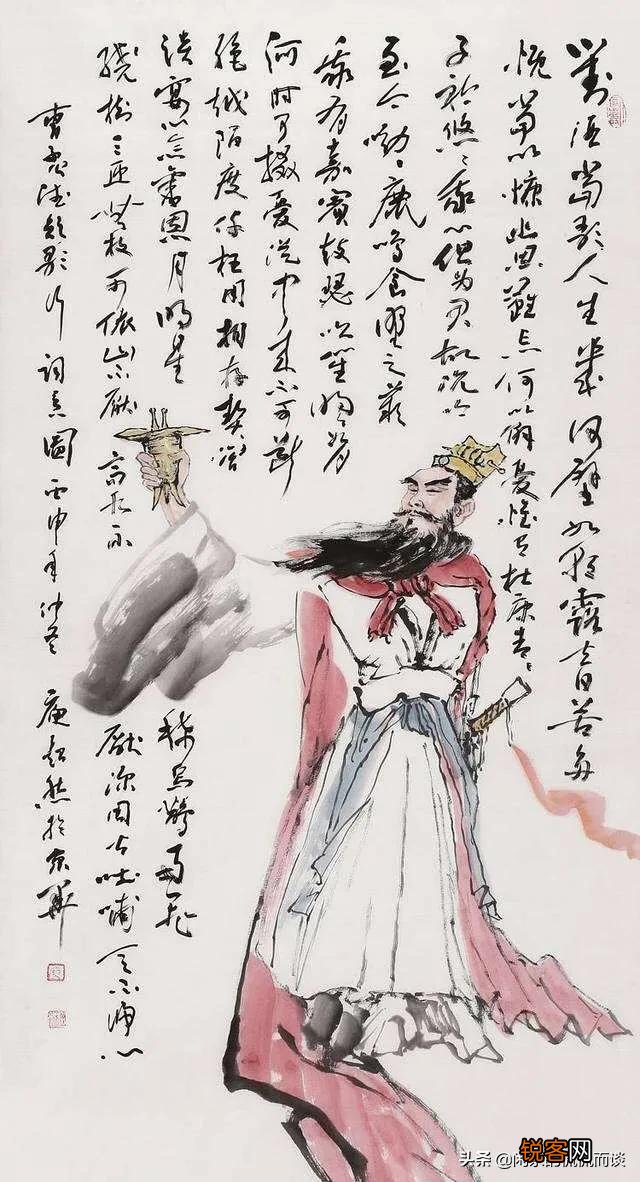 對酒當歌人生幾何譬如朝露去日苦多
慨當以慷幽思難忘何以解憂惟有杜康青々
子衿悠々我心但為君故沉吟
至今呦々鹿鳴食野之苹
我有嘉賓鼓瑟吹笙明々如月
何時可掇憂從中來不可斷
絕越陌度阡枉用相存契闊
談宴心念舊恩月明星
稀烏鵲南飛
繞樹三匝無枝可依山不厭高水不
厭深周公吐哺天下歸心
曹孟德短歌行詞意圖丙申年仲冬超然於京華
锐客网
头条 @闲侃而谈